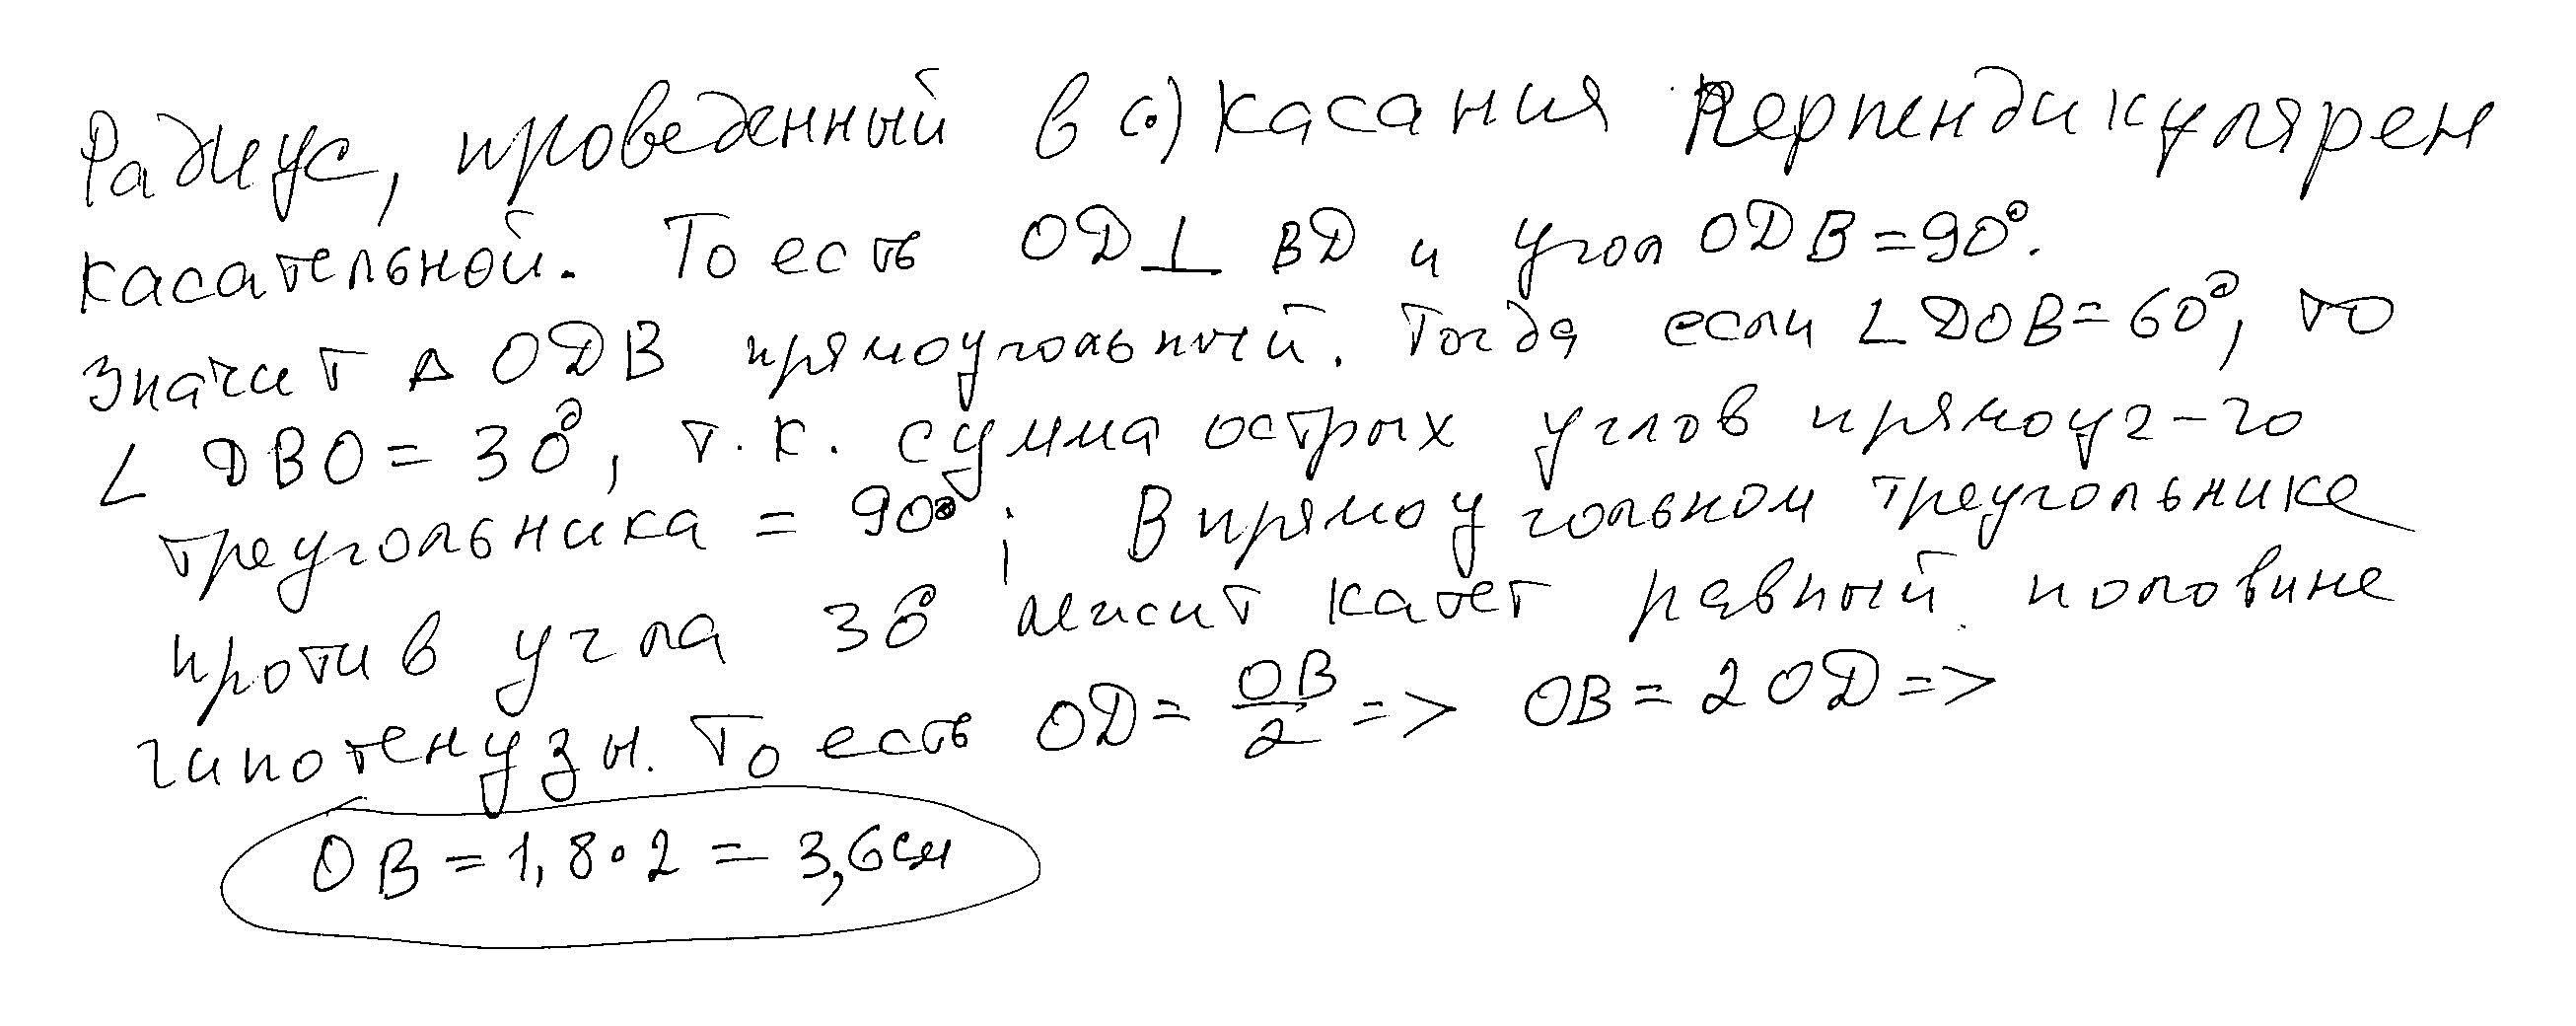 Радиус, проведенный в (.) касания перпендикулярен
касательной. То есть OD⊥ BD и угол ODB=90°.
значит △ ODB прямоугольный. Тогда если ∠DOB=60°, то
∠ DBO = 30°, т.к. сумма острых углов прямоуг-го
треугольника = 90°; В прямоугольном треугольнике
против угла 30° лежит катет равный половине
гипотенузы. То есть OD = OB/2 => OB = 2OD =>
OB = 1,8•2 = 3,6см